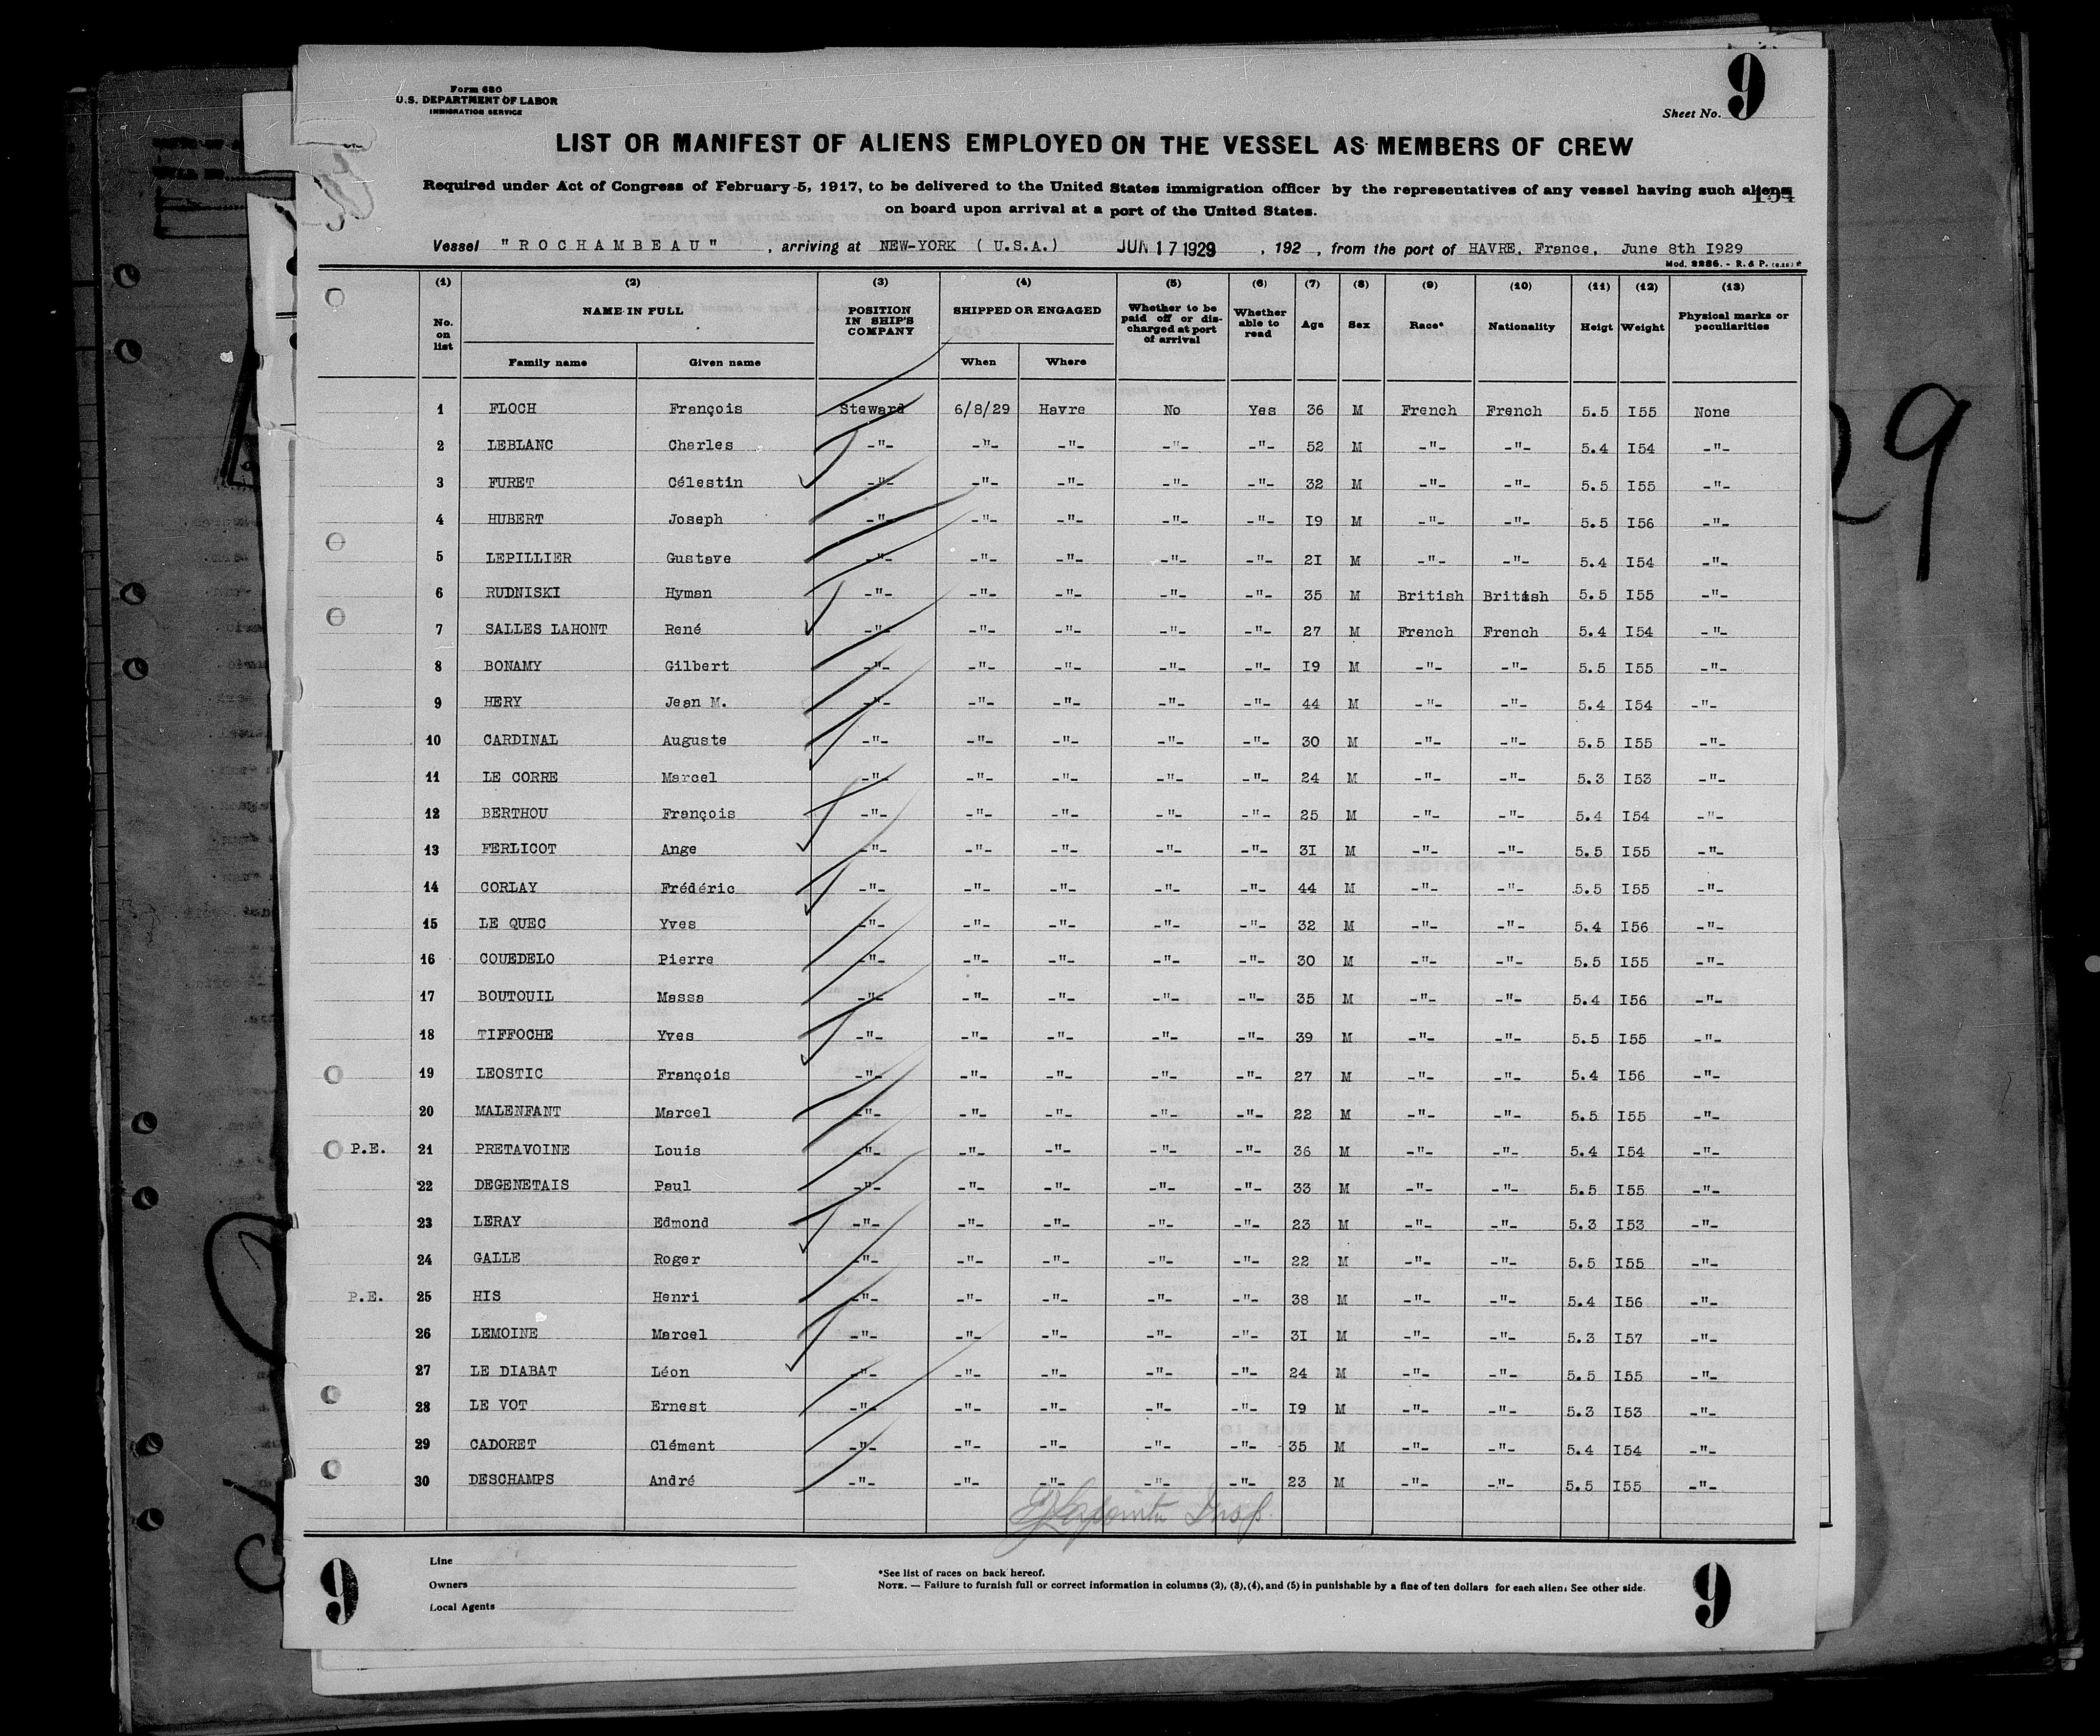 9
Form 680
U.S. DEPARTMENT OF LABOR
IMMIGRATION SERVICE
Sheet No. 9
LIST OR MANIFEST OF ALIENS EMPLOYED ON THE VESSEL AS MEMBERS OF CREW
Required under Act of Congress of February 5, 1917, to be delivered to the United States immigration officer by the representatives of any vessel having such aliens
on board upon arrival at a port of the United States.
154
Vessel "ROCHAMBEAU" , arriving at NEW-YORK (U.S.A.) JUN 17 1929 , 192 , from the port of HAVRE, France, June 8th I929
Mod. 2286. - R. & P.
(1) (2) (3) (4) (5) (6) (7) (8) (9) (10) (11) (12) (13)
No. on list NAME IN FULL POSITION IN SHIP'S COMPANY SHIPPED OR ENGAGED Whether to be paid off or discharged at port of arrival Whether able to read Age Sex Race* Nationality Heigt Weight Physical marks or peculiarities
Family name Given name When Where
1 FLOCH François Steward 6/8/29 Havre No Yes 36 M French French 5.5 I55 None
2 LEBLANC Charles -"- -"- -"- -"- -"- 52 M -"- -"- 5.4 I54 -"-
3 FURET Célestin -"- -"- -"- -"- -"- 32 M -"- -"- 5.5 I55 -"-
4 HUBERT Joseph -"- -"- -"- -"- -"- I9 M -"- -"- 5.5 I56 -"-
5 LEPILLIER Gustave -"- -"- -"- -"- -"- 2I M -"- -"- 5.4 I54 -"-
6 RUDNISKI Hyman -"- -"- -"- -"- -"- 35 M British British 5.5 I55 -"-
7 SALLES LAHONT René -"- -"- -"- -"- -"- 27 M French French 5.4 I54 -"-
8 BONAMY Gilbert -"- -"- -"- -"- -"- I9 M -"- -"- 5.5 I55 -"-
9 HERY Jean M. -"- -"- -"- -"- -"- 44 M -"- -"- 5.4 I54 -"-
10 CARDINAL Auguste -"- -"- -"- -"- -"- 30 M -"- -"- 5.5 I55 -"-
11 LE CORRE Marcel -"- -"- -"- -"- -"- 24 M -"- -"- 5.3 I53 -"-
12 BERTHOU François -"- -"- -"- -"- -"- 25 M -"- -"- 5.4 I54 -"-
13 FERLICOT Ange -"- -"- -"- -"- -"- 3I M -"- -"- 5.5 I55 -"-
14 CORLAY Frédéric -"- -"- -"- -"- -"- 44 M -"- -"- 5.5 I55 -"-
15 LE QUEC Yves -"- -"- -"- -"- -"- 32 M -"- -"- 5.4 I56 -"-
16 COUEDELO Pierre -"- -"- -"- -"- -"- 30 M -"- -"- 5.5 I55 -"-
17 BOUTOUIL Massa -"- -"- -"- -"- -"- 35 M -"- -"- 5.4 I56 -"-
18 TIFFOCHE Yves -"- -"- -"- -"- -"- 39 M -"- -"- 5.5 I55 -"-
19 LEOSTIC François -"- -"- -"- -"- -"- 27 M -"- -"- 5.4 I56 -"-
20 MALENFANT Marcel -"- -"- -"- -"- -"- 22 M -"- -"- 5.5 I55 -"-
P.E. 21 PRETAVOINE Louis -"- -"- -"- -"- -"- 36 M -"- -"- 5.4 I54 -"-
22 DEGENETAIS Paul -"- -"- -"- -"- -"- 33 M -"- -"- 5.5 I55 -"-
23 LERAY Edmond -"- -"- -"- -"- -"- 23 M -"- -"- 5.3 I53 -"-
24 GALLE Roger -"- -"- -"- -"- -"- 22 M -"- -"- 5.5 I55 -"-
P.E. 25 HIS Henri -"- -"- -"- -"- -"- 38 M -"- -"- 5.4 I56 -"-
26 LEMOINE Marcel -"- -"- -"- -"- -"- 3I M -"- -"- 5.3 I57 -"-
27 LE DIABAT Léon -"- -"- -"- -"- -"- 24 M -"- -"- 5.5 I55 -"-
28 LE VOT Ernest -"- -"- -"- -"- -"- I9 M -"- -"- 5.3 I53 -"-
29 CADORET Clément -"- -"- -"- -"- -"- 35 M -"- -"- 5.4 I54 -"-
30 DESCHAMPS André -"- -"- -"- -"- -"- 23 M -"- -"- 5.5 I55 -"-
Lapointe Insp.
Line
Owners
Local Agents
*See list of races on back hereof.
NOTE. — Failure to furnish full or correct information in columns (2), (3), (4), and (5) in punishable by a fine of ten dollars for each alien. See other side.
9 9